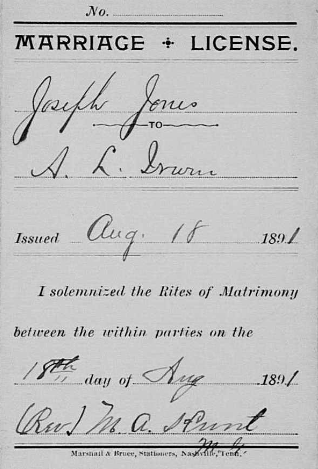 No.
MARRIAGE + LICENSE.
Joseph Jones
TO
A. L. Irwin
Issued Aug. 18 1891
I solemnized the Rites of Matrimony
between the within parties on the
18th day of Aug 1891
(Rev) M. A.
M. G.
Marshall & Bruce, Stationers, Nashville, Tenn.